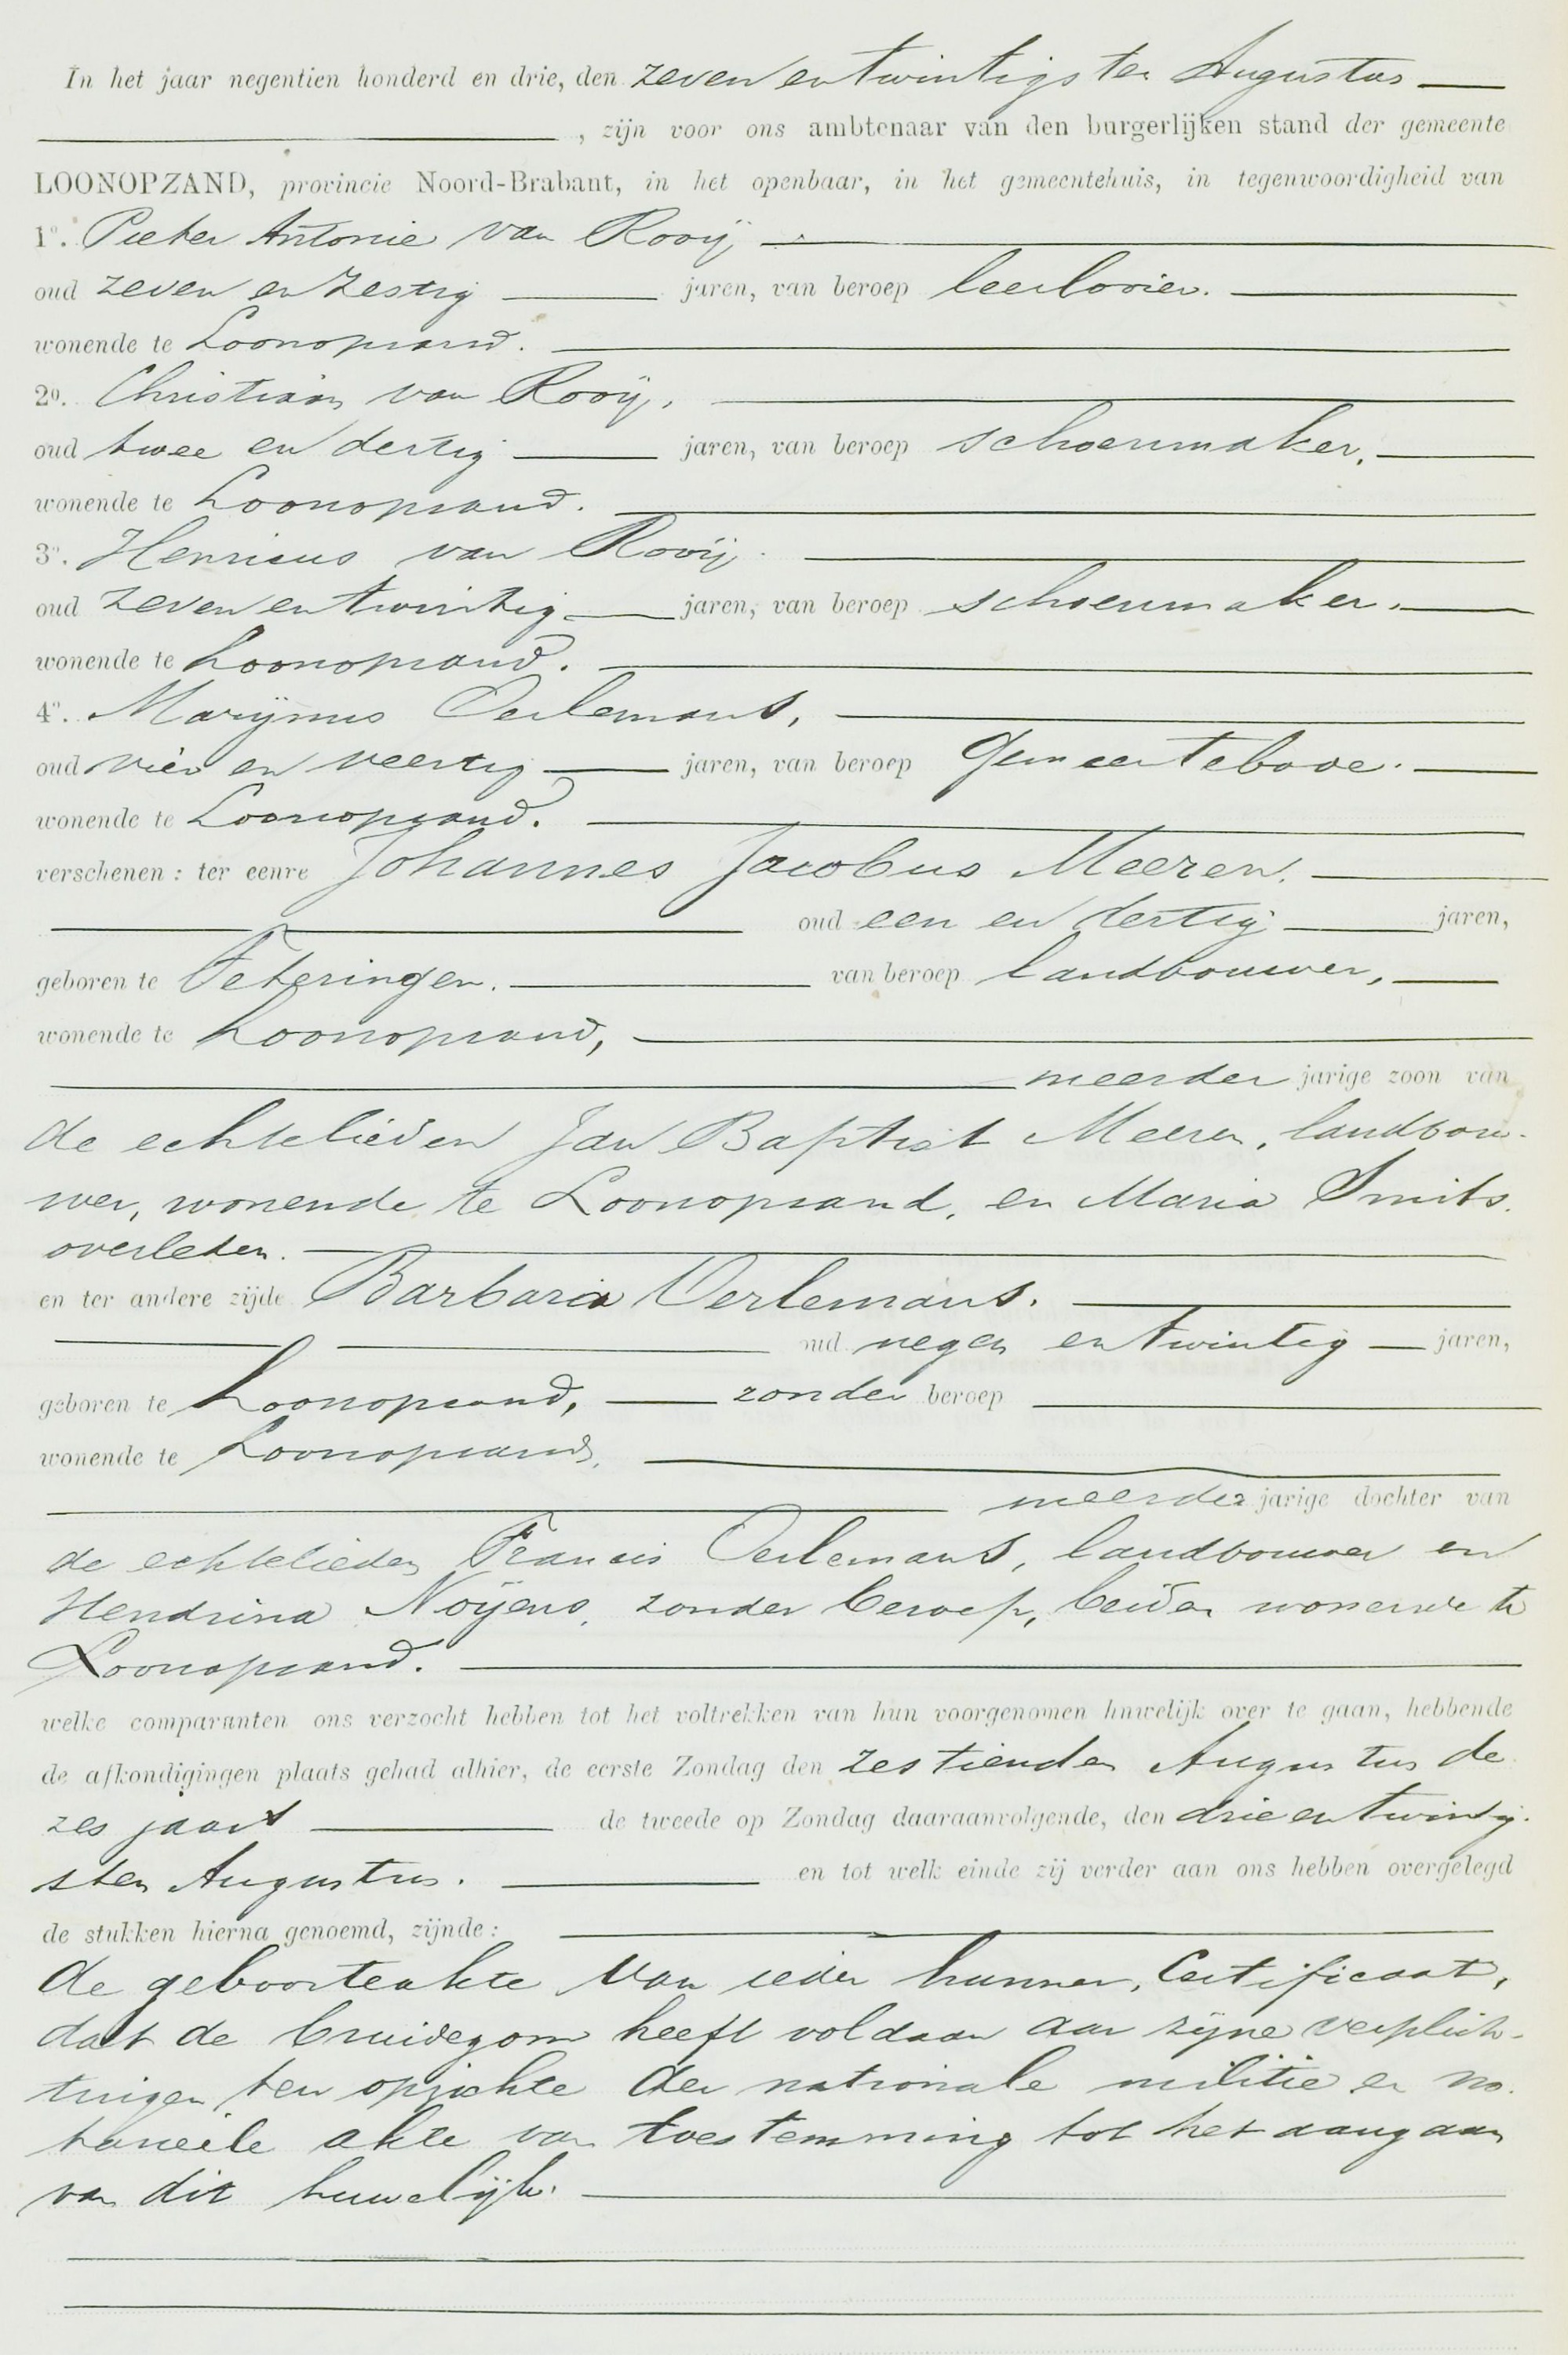 In het jaar negentien honderd en drie, den zeven en twintigsten Augustus
, zijn voor ons ambtenaar van den burgerlijken stand der gemeente
LOONOPZAND, provincie Noord-Brabant, in het openbaar, in het gemeentehuis, in tegenwoordigheid van
1º. Pieter Antonie van Rooij,
oud zeven en zestig jaren, van beroep leerlooier.
wonende te Loonopzand.
2º. Christiaan van Rooij,
oud twee en dertig jaren, van beroep schoenmaker,
wonende te Loonopzand.
3º. Henricus van Rooij
oud zeven en twintig jaren, van beroep schoenmaker.
wonende te Loonopzand.
4º. Marijnus Oerlemans,
oud vier en veertig jaren, van beroep Gemeentebode.
wonende te Loonopzand.
verschenen: ter eenre Johannes Jacobus Meeren.
oud een en dertig jaren,
geboren te Teteringen. van beroep landbouwer,
wonende te Loonopzand,
meerder jarige zoon van
de echtelieden Jan Baptist Meeren, landbou-
wer, wonende te Loonopzand, en Maria Smits.
overleden.
en ter andere zijde Barbara Oerlemans.
oud negen en twintig jaren,
geboren te Loonopzand, zonder beroep
wonende te Loonopzand,
meerder jarige dochter van
de echtelieden Francis Oerlemans, landbouwer en
Hendrina Noijens, zonder beroep, beiden wonende te
Loonopzand.
welke comparanten ons verzocht hebben tot het voltrekken van hun voorgenomen huwelijk over te gaan, hebbende
de afkondigingen plaats gehad alhier, de eerste Zondag den zestienden Augustus de
zes jaars de tweede op Zondag daaraanvolgende, den drie en twintig-
sten Augustus. en tot welk einde zij verder aan ons hebben overgelegd
de stukken hierna genoemd, zijnde:
de geboorteakte van ieder hunner, Certificaat,
dat de bruidegom heeft voldaan aan zijne verplich-
tingen ten opzichte der nationale militie en no-
tarieele akte van toestemming tot het aangaan
van dit huwelijk.